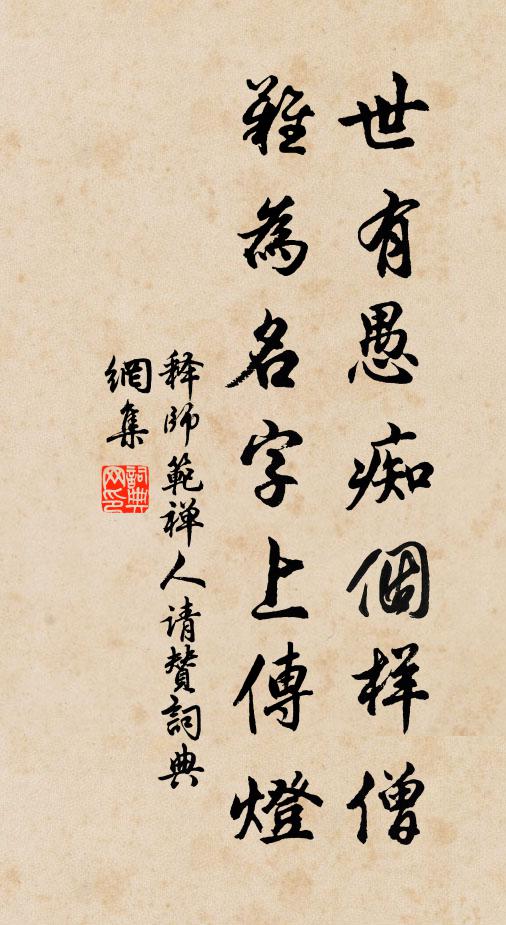 世有愚痴個样僧
難為名字上傳燈
释師範禅人请賛詞典
網集
詞典
网印